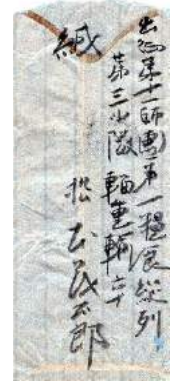 出征第十一師團第一糧食縱列
第三小隊 輜重輸卒
松 民太郎
緘